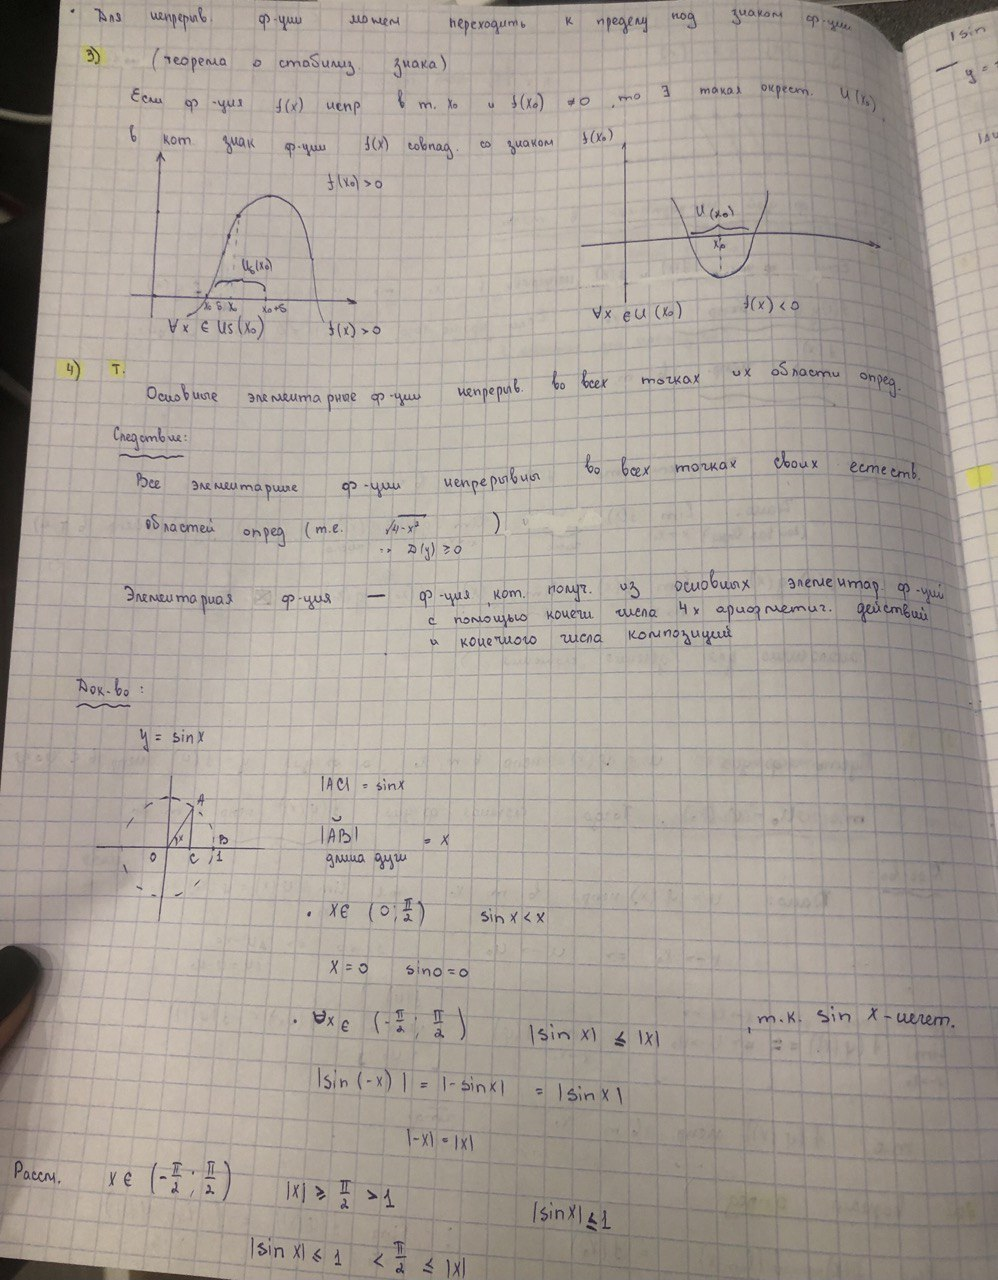 • Для непрерыв. ф-ции можем переходить к пределу под знаком ф-ции
3) (теорема о стабилиз знака)
Если ф-ция f(x) непр в т. x₀ и f(x₀) ≠0, то ∃ такая окрест. U(x₀),
в кот. знак ф-ции f(x) совпад. со знаком f(x₀)
f(x₀)>0
U(x₀)
x₀
Uδ(x₀)
x₀ x₀+δ
∀x ∈ Uδ(x₀) f(x)>0
∀x ∈ U(x₀) f(x)<0
4) Т.
Основные элементарные ф-ции непрерыв. во всех точках их области опред.
Следствие:
Все элементарные ф-ции непрерывны во всех точках своих естеств.
областей опред (т.е. √4-x² )
D(y) ≥0
Элементарная ф-ция — ф-ция, кот. получ. из основных элементар. ф-ций
с помощью конечн числа 4х ариорметич. действий
и конечного числа композиций
Док-во:
y = sinx
A
x
B
O C 1
|AC| = sinx
|A͝B| = x
длина дуги
• x∈ (0; π/2) sinx<x
x=0 sin0=0
• ∀x∈ (-π/2; π/2) |sin x| ≤ |x| , т.к. sin x-нечет.
|sin(-x)| = |-sinx| = |sinx|
|-x|=|x|
Рассм. x∈ (-π/2; π/2) |x| ≥ π/2 >1 |sinx|≤1
|sinx|≤ 1 < π/2 ≤ |x|
|sin
y =